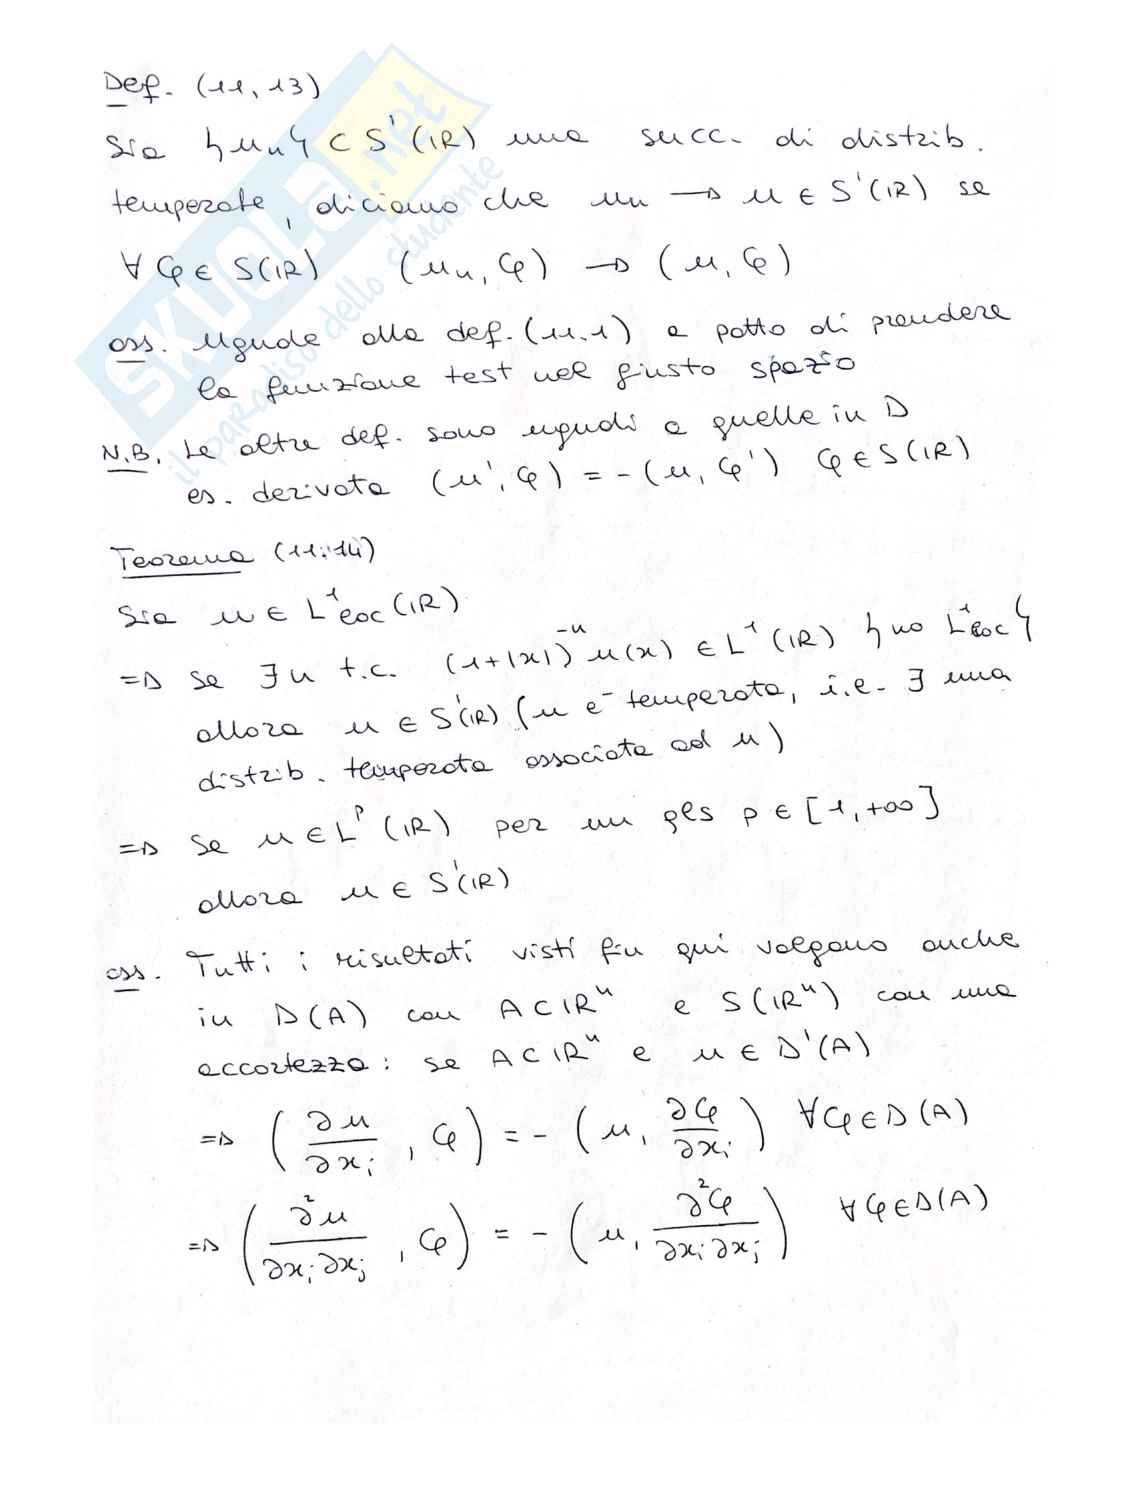 Def. (11.13)
Sia {un} ⊂ S'(ℝ) una succ. di distrib.
temperate, diciamo che un → u ∈ S'(ℝ) se
∀ φ ∈ S(ℝ) (un, φ) → (u, φ)
oss. Uguale alla def. (11.1) a patto di prendere
la funzione test nel giusto spazio
N.B. Le altre def. sono uguali a quelle in D
es. derivata (u', φ) = -(u, φ') φ ∈ S(ℝ)
Teorema (11.14)
Sia u ∈ L¹loc(ℝ)
⇒ Se ∃ n t.c. (1+|x|)⁻ⁿ u(x) ∈ L¹(ℝ) {no L¹loc}
allora u ∈ S'(ℝ) (u è temperata, i.e. ∃ una
distrib. temperata associata ad u)
⇒ Se u ∈ Lᵖ(ℝ) per un qls p ∈ [1, +∞]
allora u ∈ S'(ℝ)
oss. Tutti i risultati visti fin qui valgono anche
in D(A) con A ⊂ ℝⁿ e S(ℝⁿ) con una
accortezza: se A ⊂ ℝⁿ e u ∈ D'(A)
⇒ (∂u/∂xi, φ) = - (u, ∂φ/∂xi) ∀φ ∈ D(A)
⇒ (∂²u/∂xi∂xj, φ) = - (u, ∂²φ/∂xi∂xj) ∀φ ∈ D(A)
SKUOLA.net
il paradiso dello studente